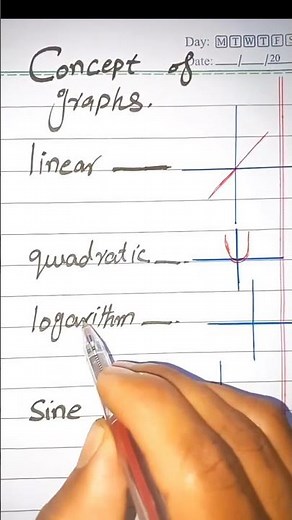 Day: M T W T F S
Date: __/__/20
Concept of
graphs.
linear
quadratic
logarithm
Sine